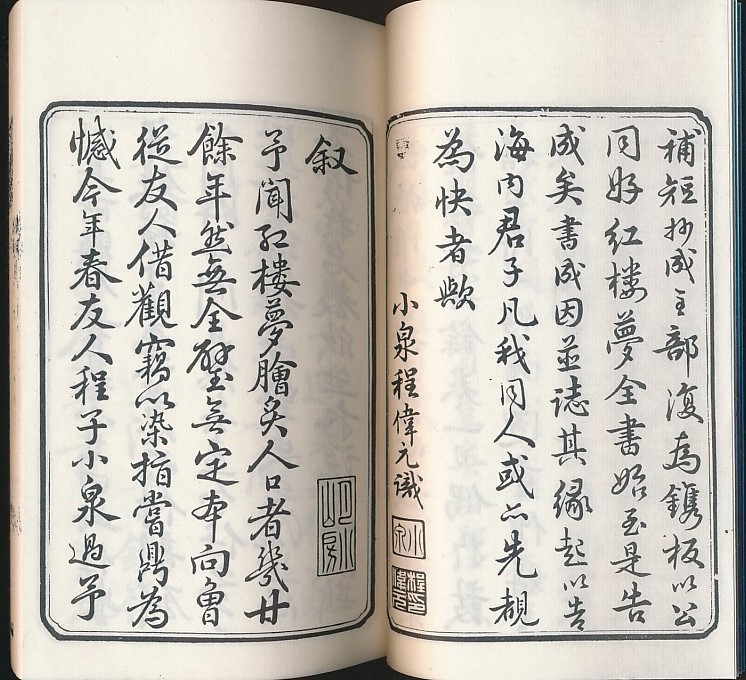 補短抄成全部復為鐫板以公
同好紅楼夢全書始至是告
成矣書成因並誌其緣起以告
海內君子凡我同人或亦先覩
為快者歟
小泉程偉元識
小泉
程偉元印
叙
予聞紅楼夢膾炙人口者幾廿
餘年然無全璧無定本向曾
從友人借觀竊以染指嘗鼎為
憾今年春友人程子小泉過予